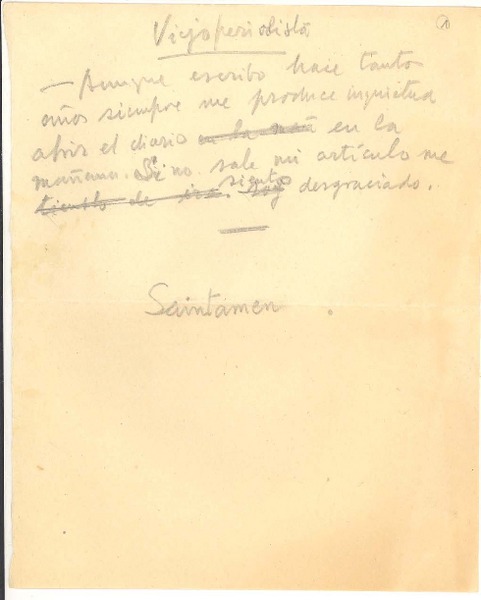 1
Viejo periodista
— Aunque escribo hace tantos
años siempre me produce inquietud
abrir el diario en la mañ en la
mañana. Si no sale mi artículo me
siento
tiemblo de ira. Soy desgraciado.
Saintamen